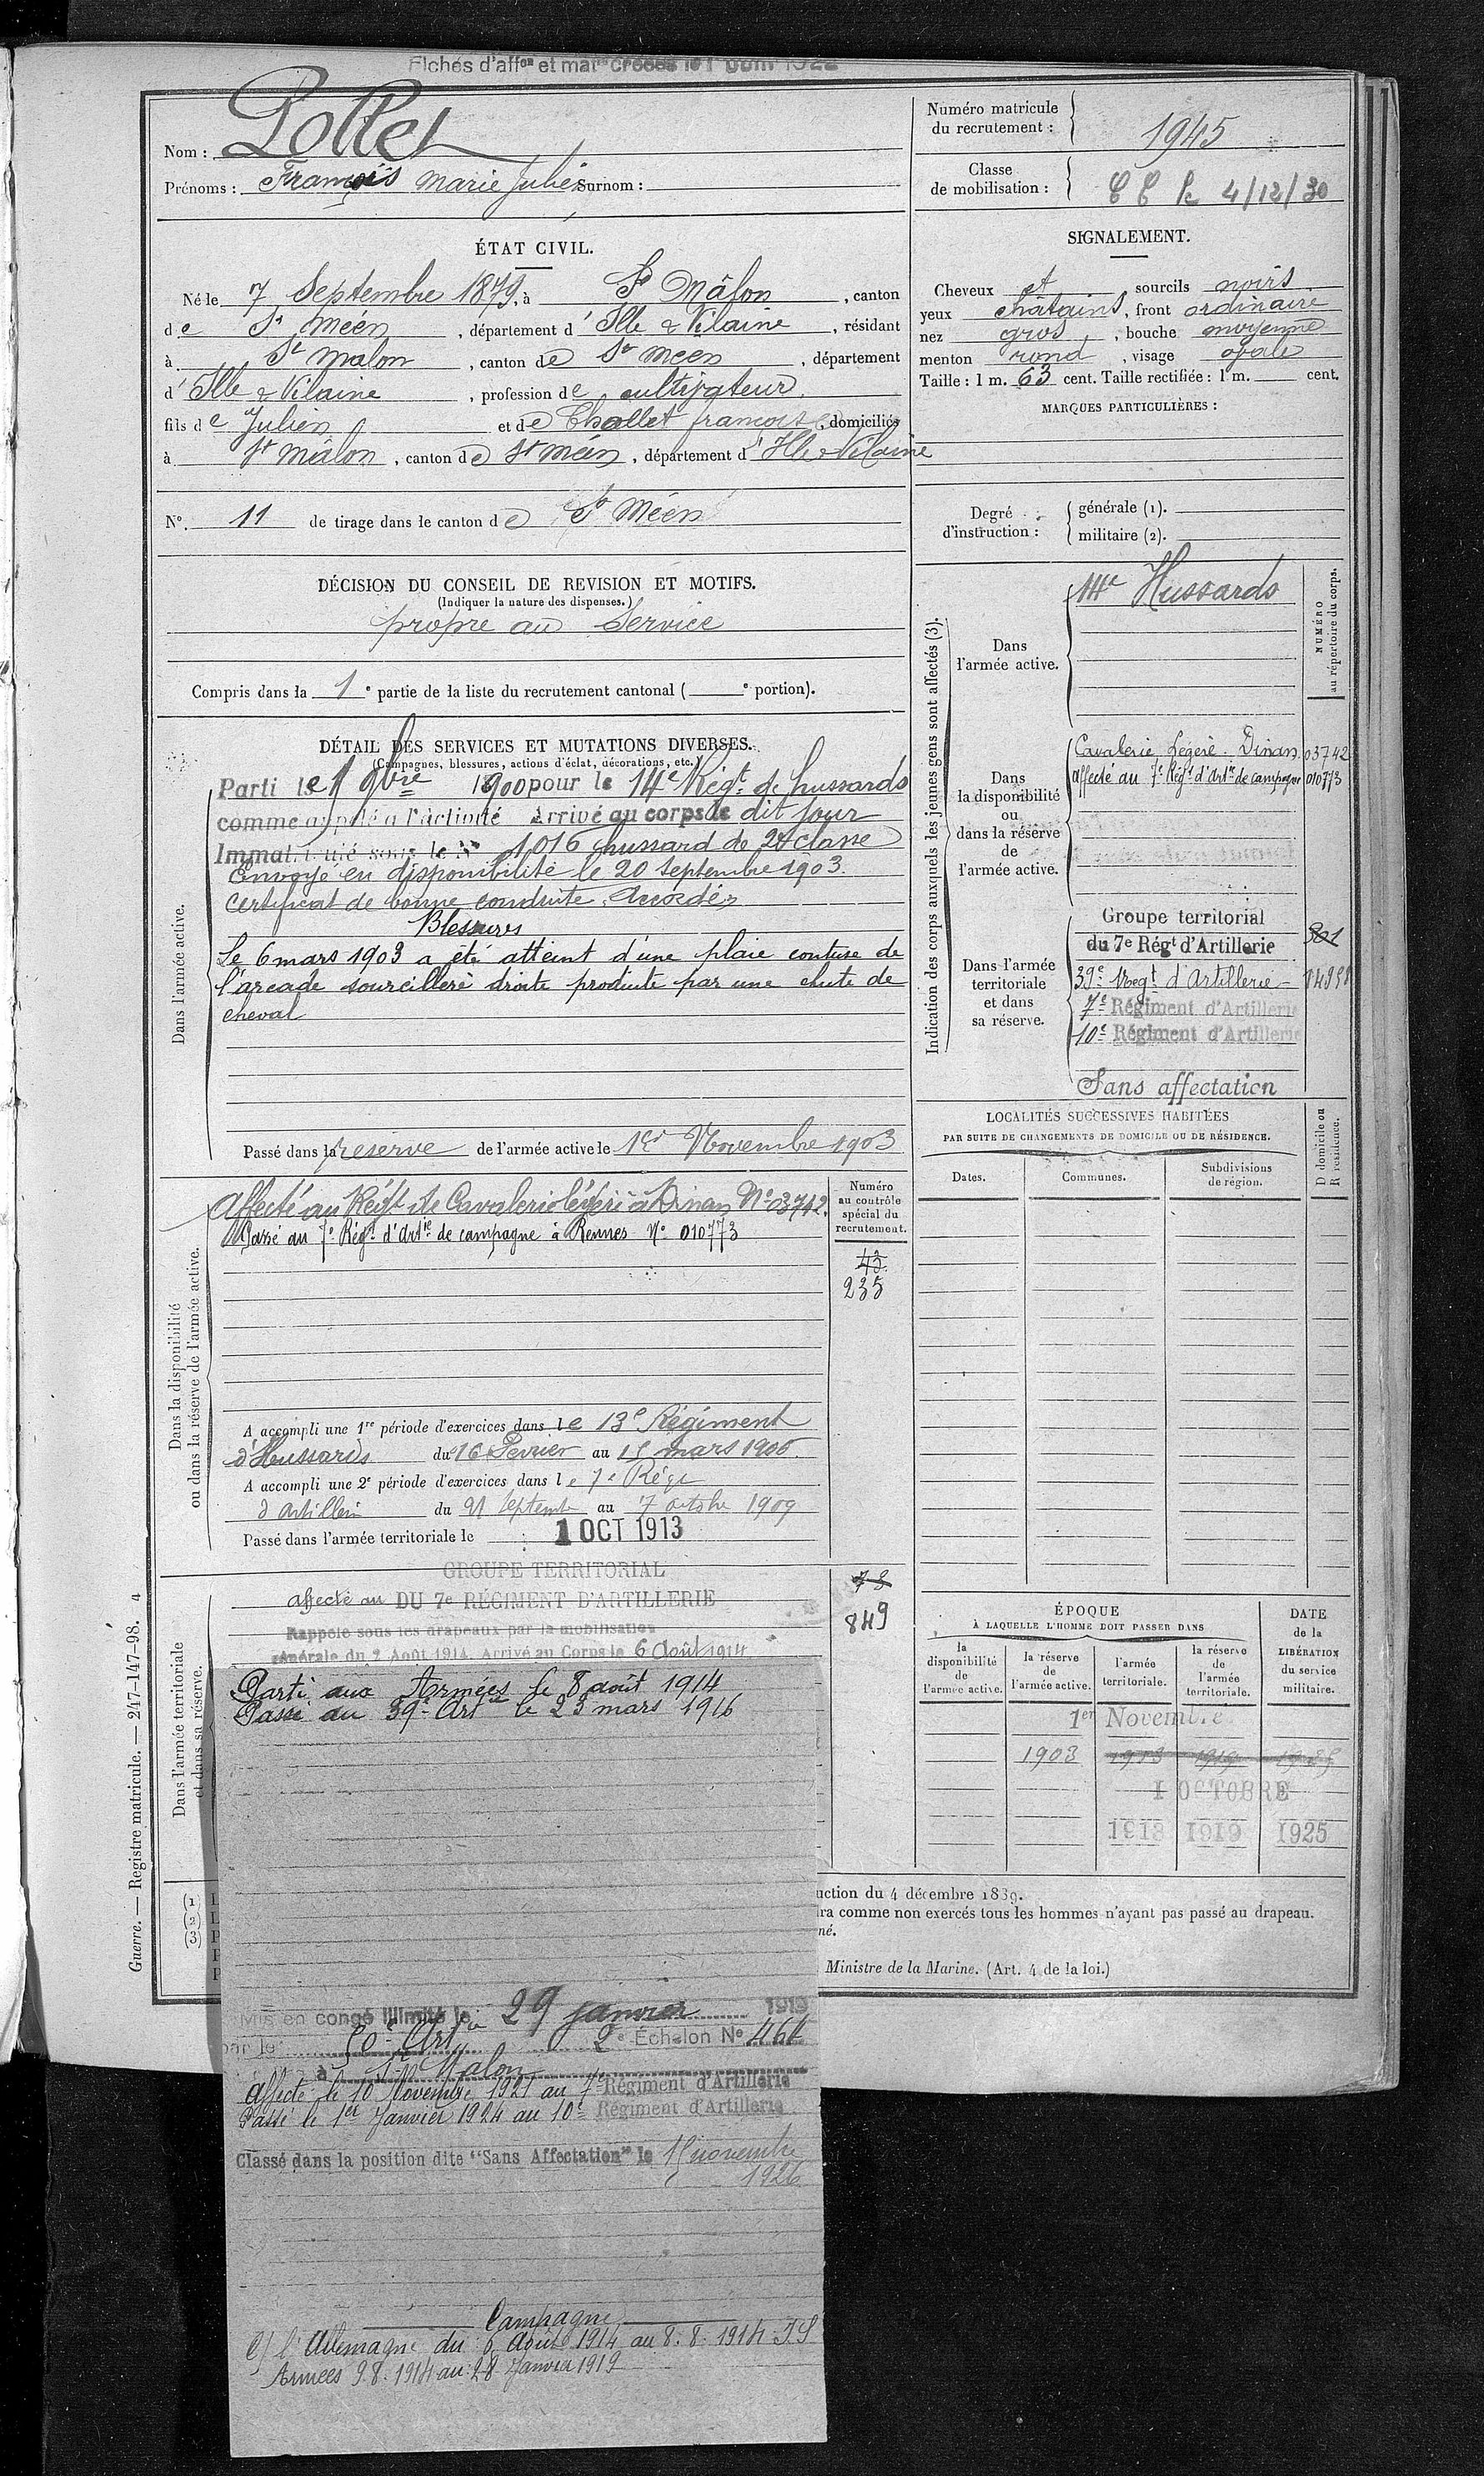 Fiches d'aff.on et mat.
Nom : Pollet
Prénoms : François Marie Julien Surnom :
Numéro matricule du recrutement : 1945
Classe de mobilisation : 4/12/30
ÉTAT CIVIL.
Né le 7 Septembre 1879, à St Mâlon, canton
de St Méen, département d'Ille & Vilaine, résidant
à St Malon, canton de St Méen, département
d'Ille & Vilaine, profession de cultivateur,
fils de Julien et de Chollet françoise, domiciliés
à St Mâlon, canton de St Méen, département d'Ille & Vilaine
N° 11 de tirage dans le canton de St Méen
SIGNALEMENT.
Cheveux et, sourcils noirs
yeux châtains, front ordinaire
nez gros, bouche moyenne
menton rond, visage ovale
Taille : 1 m. 63 cent. Taille rectifiée : 1 m. cent.
MARQUES PARTICULIÈRES :
Degré d'instruction : générale (1).
militaire (2).
DÉCISION DU CONSEIL DE REVISION ET MOTIFS.
(Indiquer la nature des dispenses.)
propre au Service
Compris dans la 1e partie de la liste du recrutement cantonal ( e portion).
DÉTAIL DES SERVICES ET MUTATIONS DIVERSES.
(Campagnes, blessures, actions d'éclat, décorations, etc.)
Dans l'armée active.
Parti le 1 9bre 1900 pour le 14e Régt de hussards
comme appelé à l'activité Arrivé au corps le dit jour
Immatriculé sous le N° 1016 hussard de 2e classe
Envoyé en disponibilité le 20 Septembre 1903.
Certificat de bonne conduite Accordé
Blessures
Le 6 mars 1903 a été atteint d'une plaie contuse de
l'arcade sourcillère droite produite par une chute de
cheval
Passé dans la réserve de l'armée active le 1er Novembre 1903
Indication des corps auxquels les jeunes gens sont affectés (3).
NUMÉRO au répertoire du corps.
Dans l'armée active.
14e Hussards
Dans la disponibilité ou dans la réserve de l'armée active.
Cavalerie Légère. Dinan 03742
affecté au 7e Régt d'Artie de campagne 010773
Dans l'armée territoriale et dans sa réserve.
Groupe territorial
du 7e Régt d'Artillerie 301
39e Régt d'Artillerie
7e Régiment d'Artillerie
10e Régiment d'Artillerie
Sans affectation
LOCALITÉS SUCCESSIVES HABITÉES
PAR SUITE DE CHANGEMENTS DE DOMICILE OU DE RÉSIDENCE.
Dates. Communes. Subdivisions de région. D domicile ou R résidence.
Dans la disponibilité ou dans la réserve de l'armée active.
Numéro au contrôle spécial du recrutement.
Affecté au Régt de Cavalerie légère à Dinan N° 03742.
Passé au 7e Régt d'Artie de campagne à Rennes N° 010773
43
235
A accompli une 1re période d'exercices dans le 13e Régiment
d'Hussards du 16 Février au 15 mars 1906.
A accompli une 2e période d'exercices dans le 7e Régt
d'artillerie du 21 septemb au 7 octobre 1909
Passé dans l'armée territoriale le 1 OCT 1913
Dans l'armée territoriale et dans sa réserve.
GROUPE TERRITORIAL
affecté au DU 7e RÉGIMENT D'ARTILLERIE
Rappelé sous les drapeaux par la mobilisation
générale du 2 Août 1914. Arrivé au Corps le 6 Août 1914
849
Parti aux Armées le 8 août 1914
Passé au 39e Artie le 23 mars 1916
ÉPOQUE
À LAQUELLE L'HOMME DOIT PASSER DANS
la disponibilité de l'armée active. la réserve de l'armée active. l'armée territoriale. la réserve de l'armée territoriale.
DATE de la LIBÉRATION du service militaire.
1er Novembre
1903 1913 1919 1925
1 OCTOBRE
1913 1919 1925
(1)
(2)
(3)
uction du 4 décembre 1889.
ra comme non exercés tous les hommes n'ayant pas passé au drapeau.
né.
Ministre de la Marine. (Art. 4 de la loi.)
Guerre. — Registre matricule. — 247-147-98. 4
Mis en congé illimité le 29 janvier 1919
par le 50e Artie 2e Échelon N° 464
à St Malon
Affecté le 10 Novembre 1921 au 7e Régiment d'Artillerie
Passé le 1er Janvier 1924 au 10e Régiment d'Artillerie
Classé dans la position dite "Sans Affectation" le 15 novembre
1926
Campagne
C/ l'Allemagne du 6 Août 1914 au 8.8.1914
Armées 9.8.1914 au 28 Janvier 1919